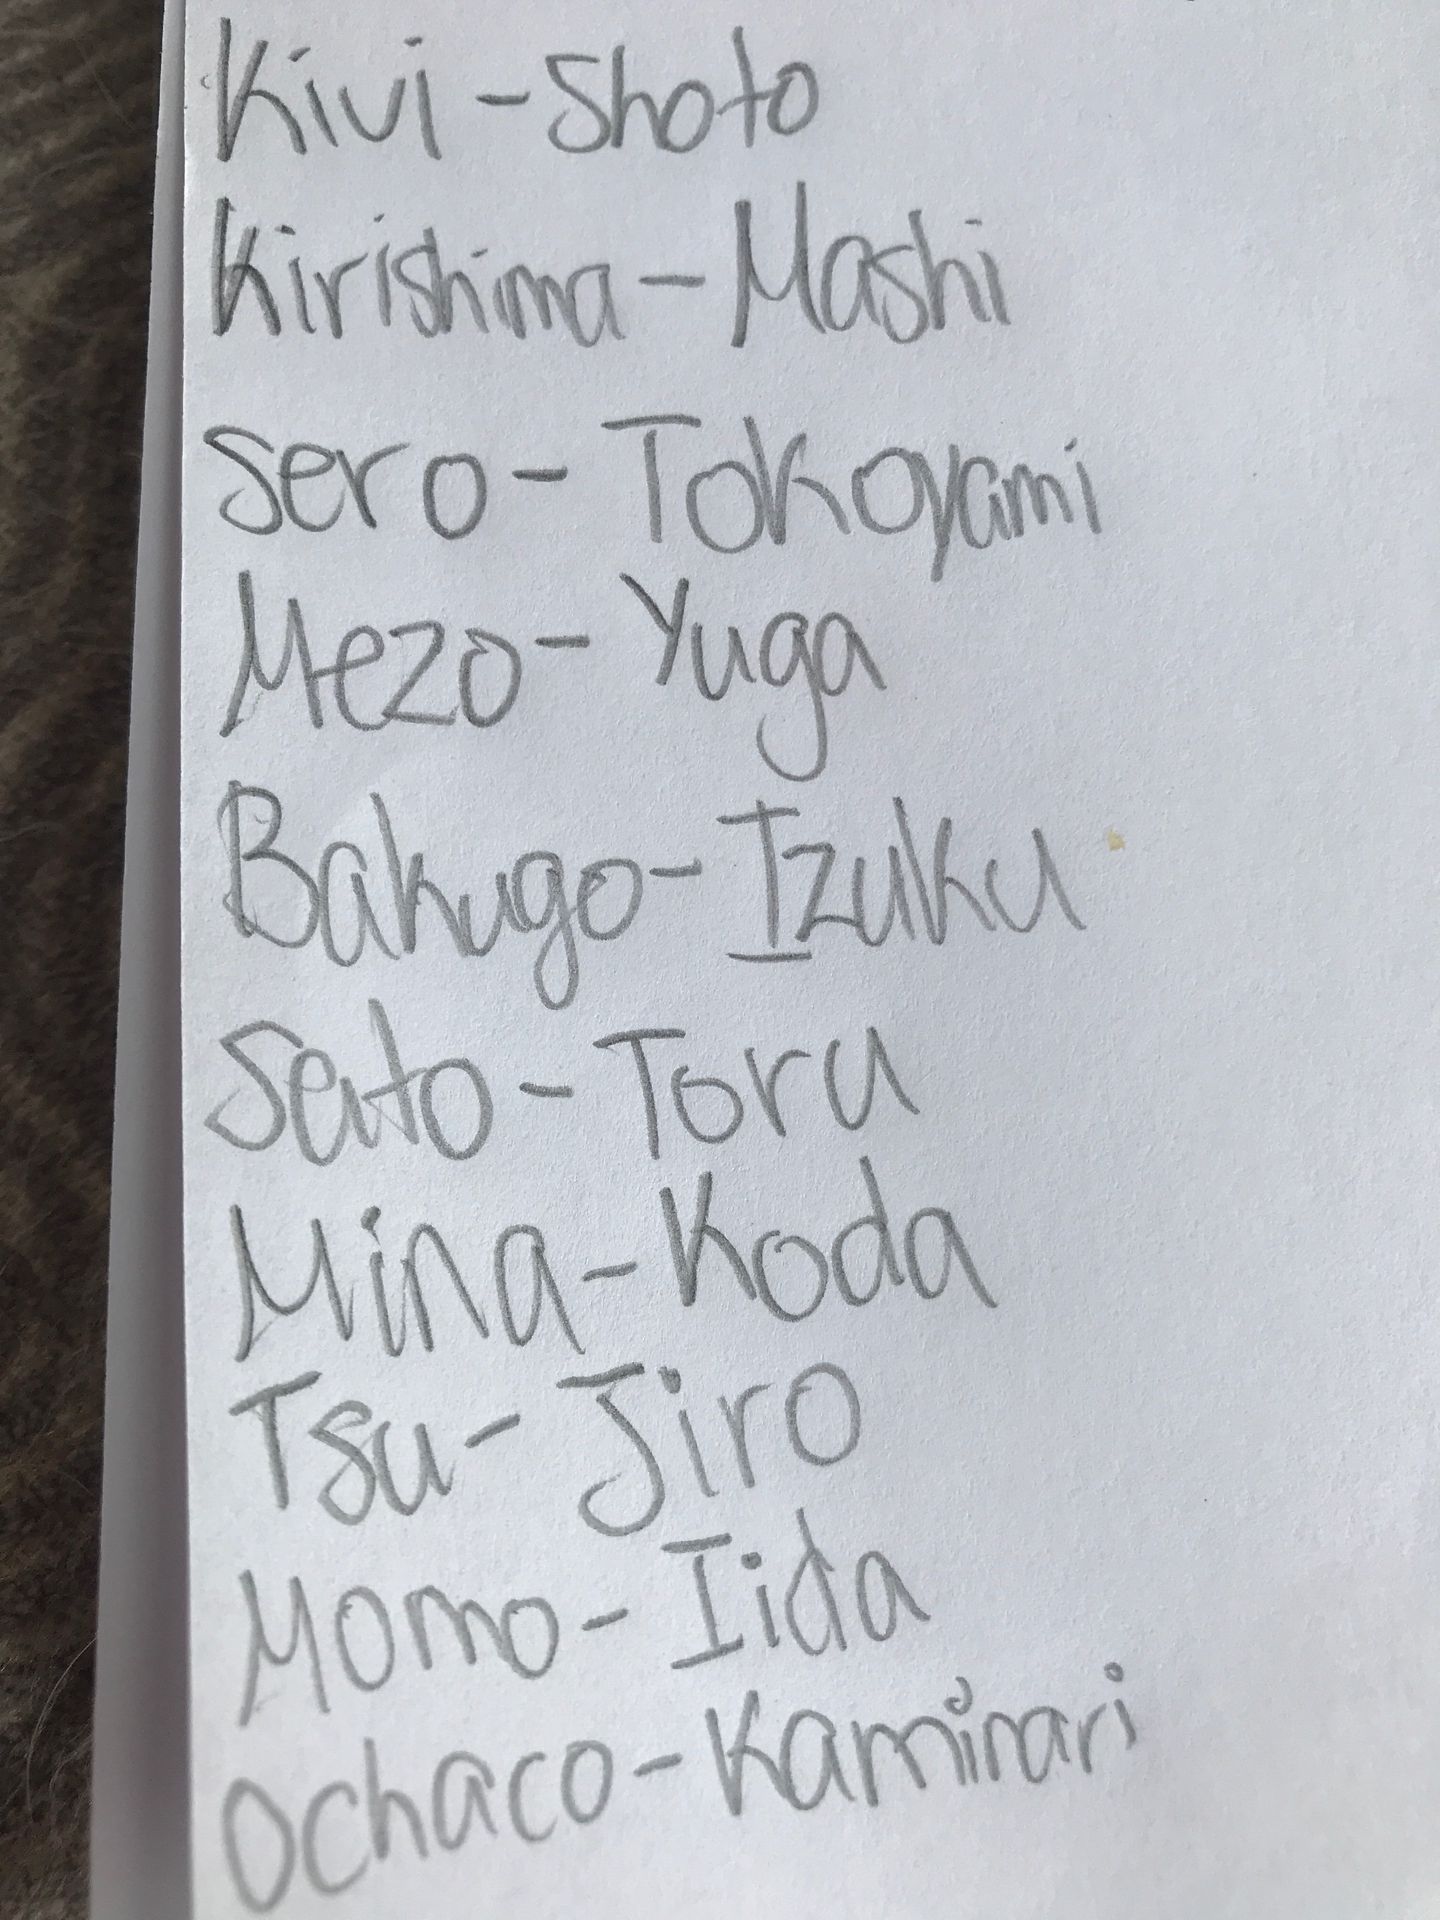 Kivi - Shoto
Kirishima - Mashi
Sero - Tokoyami
Mezo - Yuga
Bakugo - Izuku
Sato - Toru
Mina - Koda
Tsu - Jiro
Momo - Iida
Ochaco - Kaminari